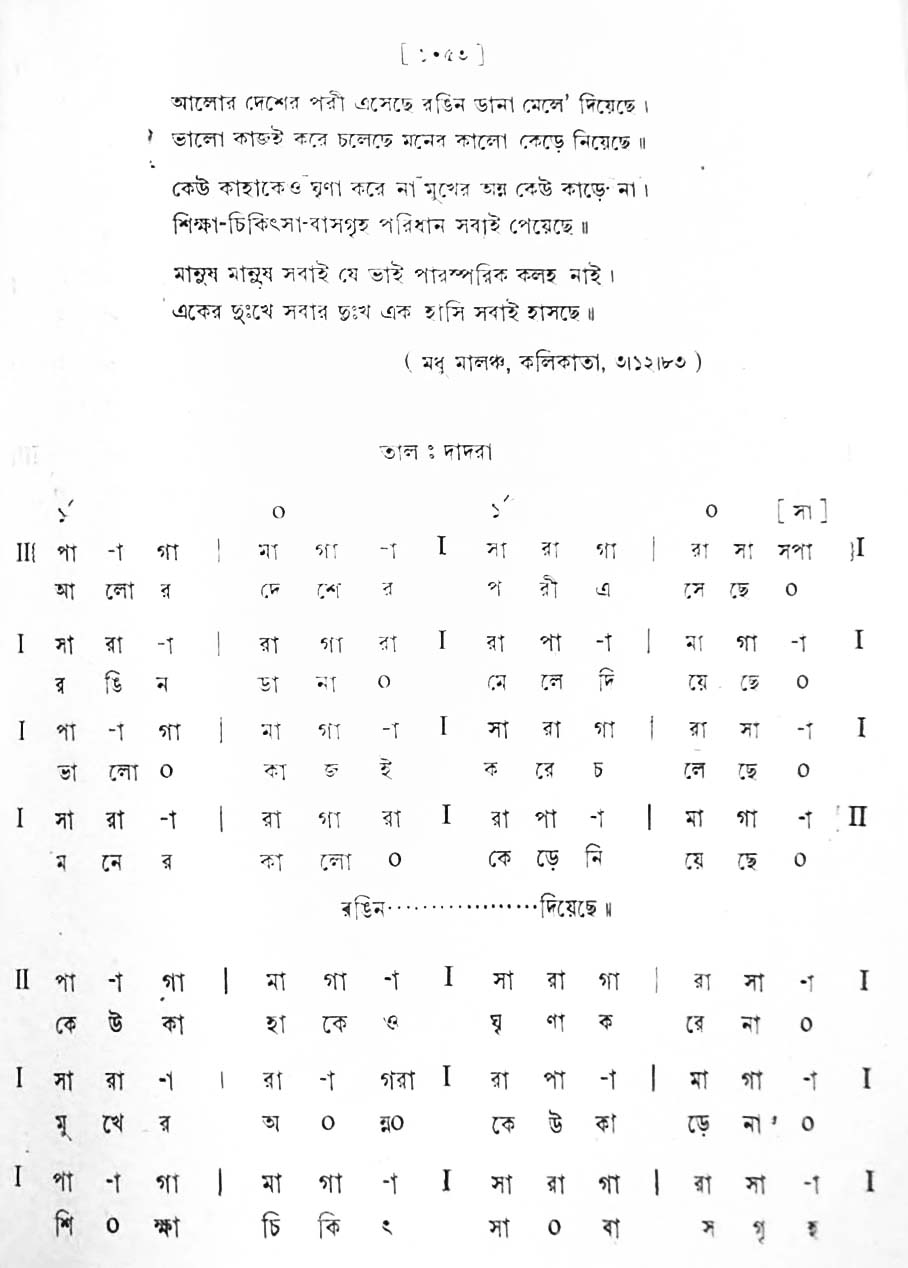 [ ১০৫৩ ]
আলোর দেশের পরী এসেছে রঙিন ডানা মেলে' দিয়েছে ।
ভালো কাজই করে চলেছে মনের কালো কেড়ে নিয়েছে ॥
কেউ কাহাকেও ঘৃণা করে না মুখের অন্ন কেউ কাড়ে না ।
শিক্ষা-চিকিৎসা-বাসগৃহ পরিধান সবাই পেয়েছে ॥
মানুষ মানুষ সবাই যে ভাই পারস্পরিক কলহ নাই ।
একের দুঃখে সবার দুঃখ এক হাসি সবাই হাসছে ॥
( মধু মালঞ্চ, কলিকাতা, ৩।১২।৮৩ )
তাল : দাদরা
১´ ০ ১´ ০ [ সা ]
II{ পা -া গা | মা গা -া I সা রা গা | রা সা সপা }I
আ লো র দে শে র প রী এ সে ছে ০
I সা রা -া | রা গা রা I রা পা -া | মা গা -া I
র ঙি ন ডা না ০ মে লে দি য়ে ছে ০
I পা -া গা | মা গা -া I সা রা গা | রা সা -া I
ভা লো ০ কা জ ই ক রে চ লে ছে ০
I সা রা -া | রা গা রা I রা পা -া | মা গা -া II
ম নে র কা লো ০ কে ড়ে নি য়ে ছে ০
রঙিন··················দিয়েছে ॥
II পা -া গা | মা গা -া I সা রা গা | রা সা -া I
কে উ কা হা কে ও ঘৃ ণা ক রে না ০
I সা রা -া | রা -া গরা I রা পা -া | মা গা -া I
মু খে র অ ০ ন্ন০ কে উ কা ড়ে না ০
I পা -া গা | মা গা -া I সা রা গা | রা সা -া I
শি ০ ক্ষা চি কি ৎ সা ০ বা স গৃ হ